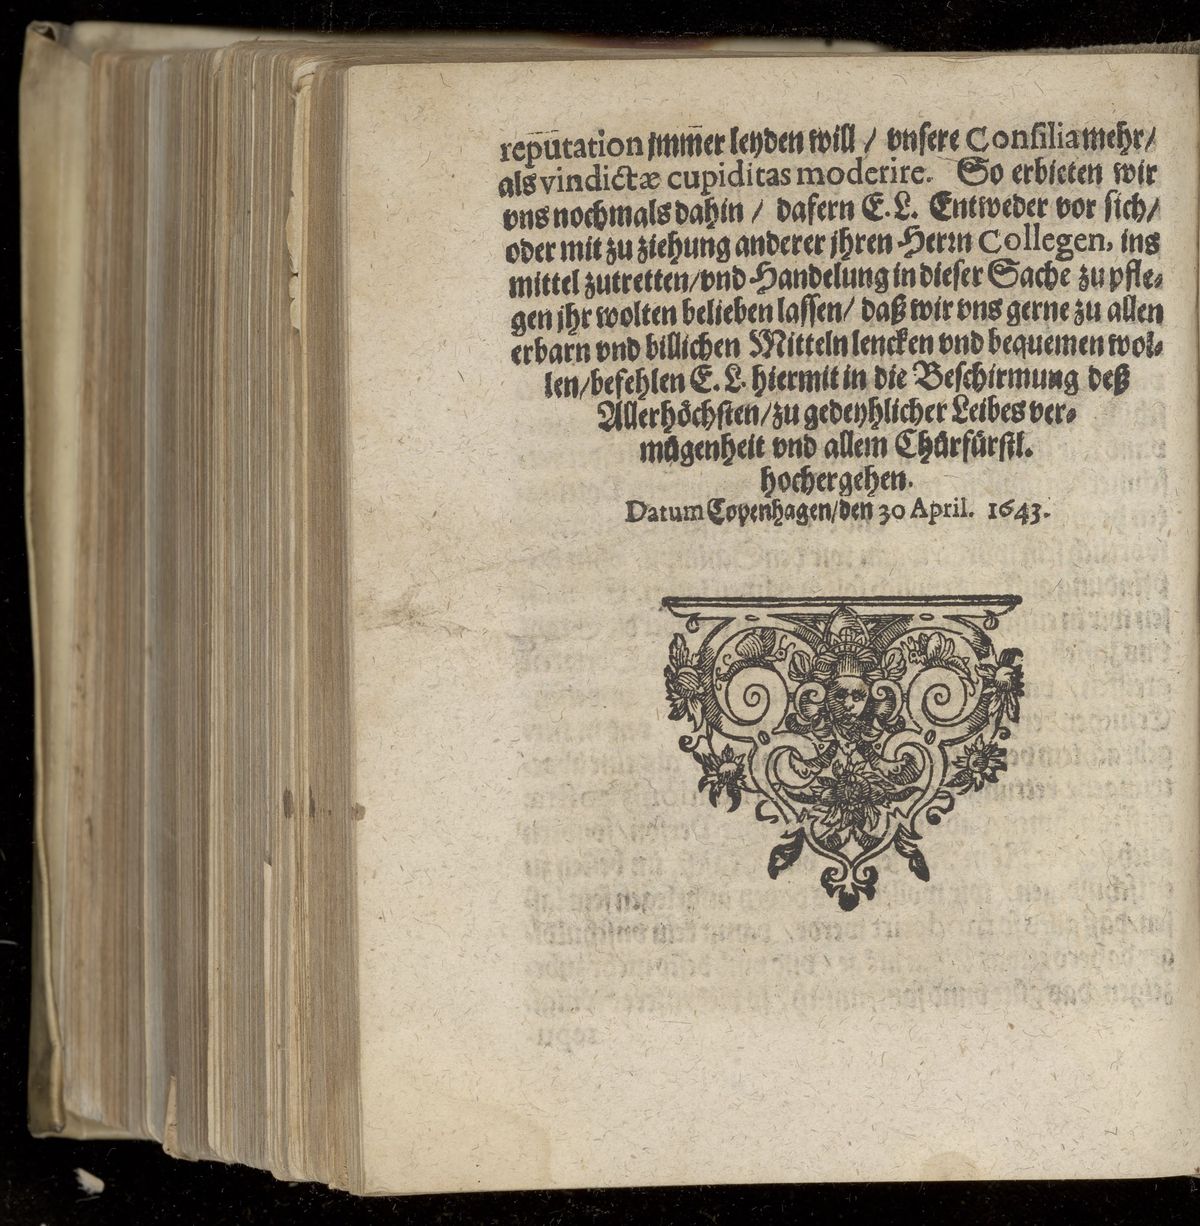 repūtation jmm̃er leyden will / vnsere Consilia mehr/
als vindictæ cupiditas moderire. So erbieten wir
vns nochmals dahin / dafern E. L. Entweder vor sich/
oder mit zu ziehung anderer jhren Herrn Collegen, ins
mittel zutretten/vnd Handelung in dieser Sache zu pfle-
gen jhr wolten belieben lassen/ daß wir vns gerne zu allen
erbarn vnd billichen Mitteln lencken vnd bequemen wol-
len/befehlen E. L. hiermit in die Beschirmung deß
Allerhöchsten/zu gedeyhlicher Leibes ver-
mügenheit vnd allem Chürfürstl.
hochergehen.
Datum Copenhagen/den 30 April. 1643.